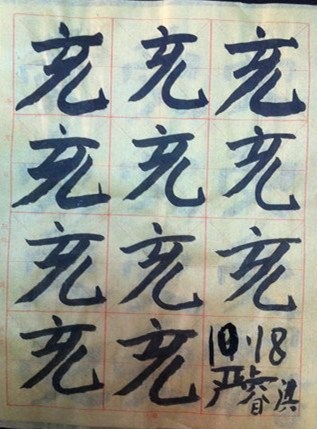 充 充 充
充 充 充
充 充 充
充 充 10·18
严睿淇